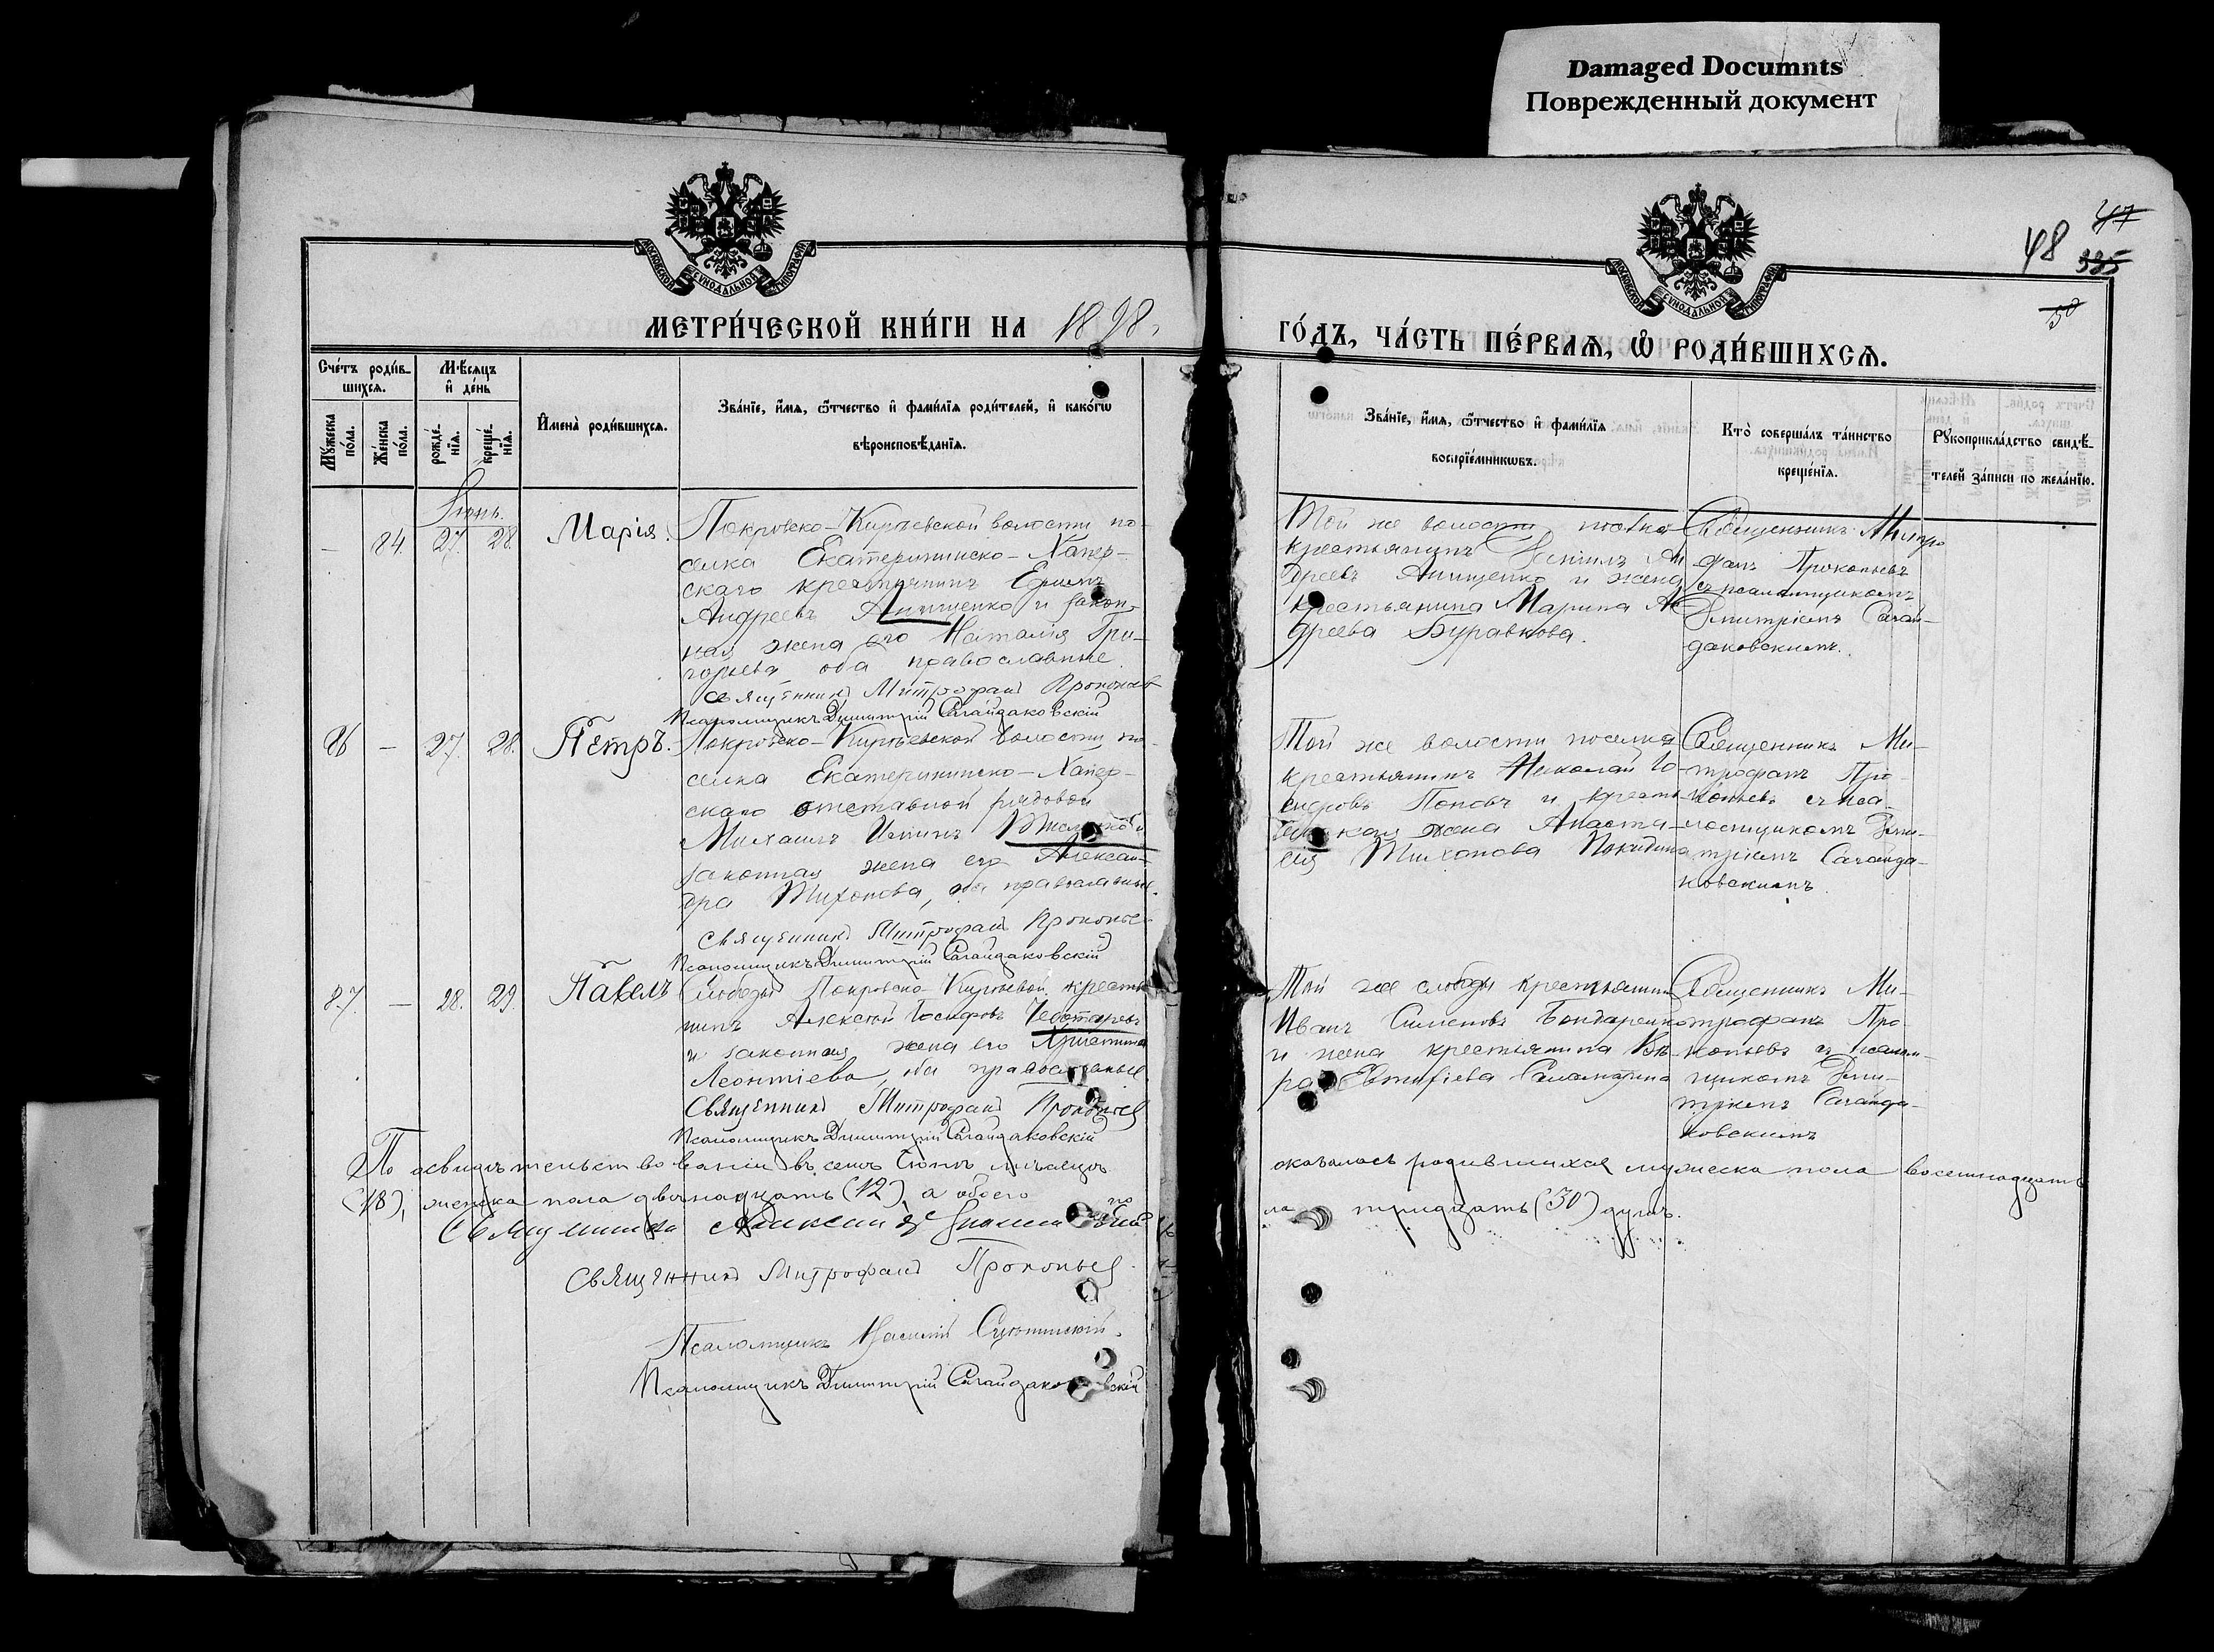 Damaged Documnts
Поврежденный документ
МОСКОВСКОЙ СѴНОДАЛЬНОЙ ТИПОГРАФІИ
МОСКОВСКОЙ СѴНОДАЛЬНОЙ ТИПОГРАФІИ
47
48 335
50
МЕТРИ́ЧЕСКОЙ КНИ́ГИ НА 1898.
ГО́ДЪ, ЧА́СТЬ ПЕ́РВАѦ, Ѡ РОДИ́ВШИХСѦ.
Сче́тъ роди́в-
шихсѧ.
Мꙋ́жеска
по́ла.
Же́нска
по́ла.
Мѣ́сѧцъ
и҆ де́нь
рожде́-
нїѧ.
креще́-
нїѧ.
И҆мена̀ роди́вшихсѧ.
Зва́нїе, и҆́мѧ, ѻ҆́тчество и҆ фами́лїѧ роди́телей, и҆ како́гѡ
вѣроисповѣ́данїѧ.
Зва́нїе, и҆́мѧ, ѻ҆́тчество и҆ фами́лїѧ
воспрїе́мникѡвъ.
Кто̀ соверша́лъ та́инство
креще́нїѧ.
Рꙋкоприкла́дство свидѣ́-
телей за́писи по жела́нїю.
Іюнь.
— 84. 27. 28. Марія.
Покровско-Киреевской волости по-
селка Екатерининско-Хапер-
скаго крестьянинъ Ефимъ
Андреевъ Анищенко и закон-
ная жена его Наталія Гри-
горьева оба православные.
Священникъ Митрофанъ Прокопьев
Псаломщикъ Димитрій Сагайдаковскій
Той же волости поселка
крестьянинъ Ан-
дреевъ Анищенко и жена
крестьянина Марина Ан-
дреева Буравкова.
Священникъ Митро-
фанъ Прокопьевъ
съ псаломщикомъ
Димитріемъ Сагай-
даковскимъ.
86 — 27. 28. Петръ.
Покровско-Киреевской волости по-
селка Екатерининско-Хапер-
скаго отставной рядовой
Михаилъ и
законная жена его Алексан-
дра Тихонова, оба православные.
Священникъ Митрофанъ Прокопьев
Псаломщикъ Димитрій Сагайдаковскій
Той же волости поселка
крестьянинъ Николай Іо-
сифовъ Поповъ и крестья-
жена Анаста-
сія Тихонова
Священникъ Ми-
трофанъ Про-
копьевъ съ пса-
ломщикомъ Дми-
тріемъ Сагайда-
ковскимъ.
87. — 28. 29. Павелъ
Слободы Покровско-Киреевой крестья-
нинъ Алексѣй Іосифовъ Чеботаревъ
и законная жена его Христина
Леонтіева, оба православные.
Священникъ Митрофанъ Прокопьев
Псаломщикъ Димитрій Сагайдаковскій
Той же слободы крестьянинъ
Иванъ Симеоновъ Бондаренко
и жена крестьянина Вѣ-
ра Евтифіева
Священникъ Ми-
трофанъ Про-
копьевъ съ псалом-
щикомъ Дми-
тріемъ Сагайда-
ковскимъ
По освидѣтельствованіи въ семъ Іюнѣ мѣсяцѣ оказалось родившихся мужеска пола восемнадцать
(18), женска пола двѣнадцать (12), а обоего по-
ла тридцать (30) душъ.
Священникъ Алексій
Священникъ Митрофанъ Прокопьев
Псаломщикъ Василій
Псаломщикъ Димитрій Сагайдаковскій